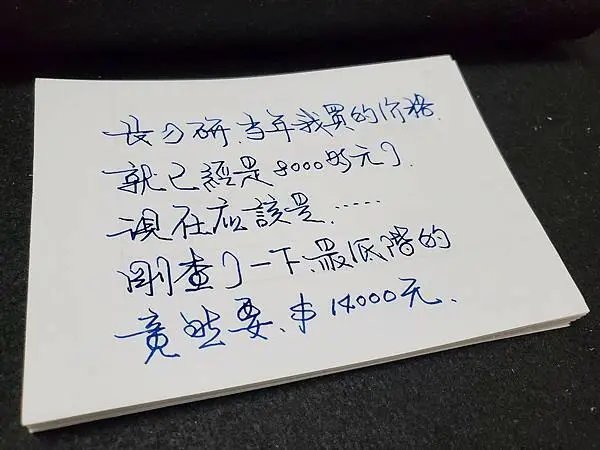 長刀研.当年我買的价格.
就已經是8000多元了.
現在应該是......
剛查了一下、最低階的
竟然要、14000元.